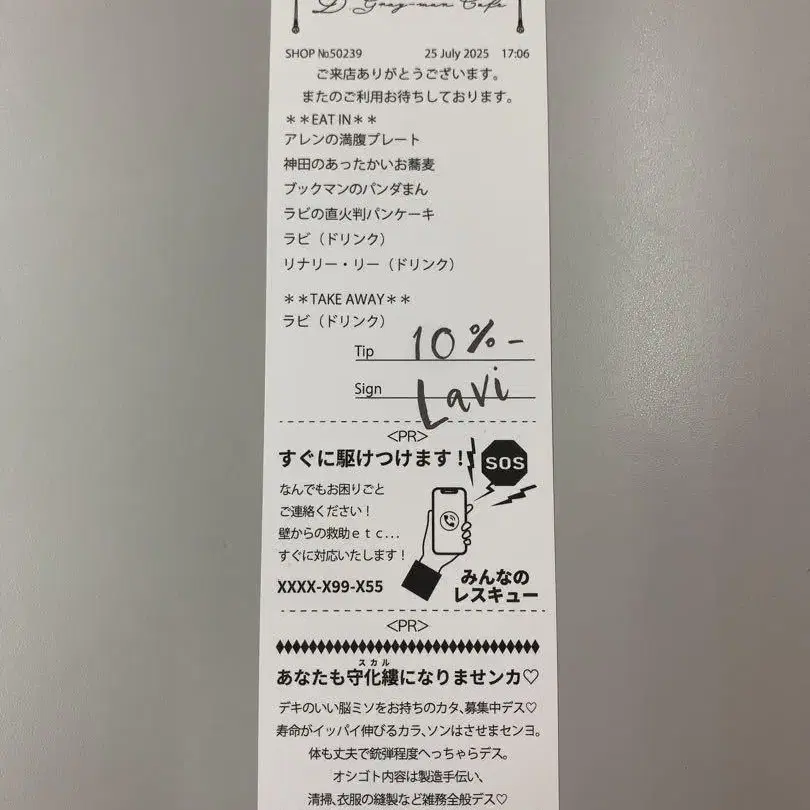 D. Gray-man Cafe
SHOP №50239 25 July 2025 17:06
ご来店ありがとうございます。
またのご利用お待ちしております。
＊＊EAT IN＊＊
アレンの満腹プレート
神田のあったかいお蕎麦
ブックマンのパンダまん
ラビの直火判パンケーキ
ラビ（ドリンク）
リナリー・リー（ドリンク）
＊＊TAKE AWAY＊＊
ラビ（ドリンク）
Tip 10%-
Sign Lavi
<PR>
すぐに駆けつけます！
SOS
なんでもお困りごと
ご連絡ください！
壁からの救助ｅｔｃ...
すぐに対応いたします！
XXXX-X99-X55
みんなの
レスキュー
<PR>
スカル
あなたも守化縷になりませンカ♡
デキのいい脳ミソをお持ちのカタ、募集中デス♡
寿命がイッパイ伸びるカラ、ソンはさせまセンヨ。
体も丈夫で銃弾程度へっちゃらデス。
オシゴト内容は製造手伝い、
清掃、衣服の縫製など雑務全般デス♡